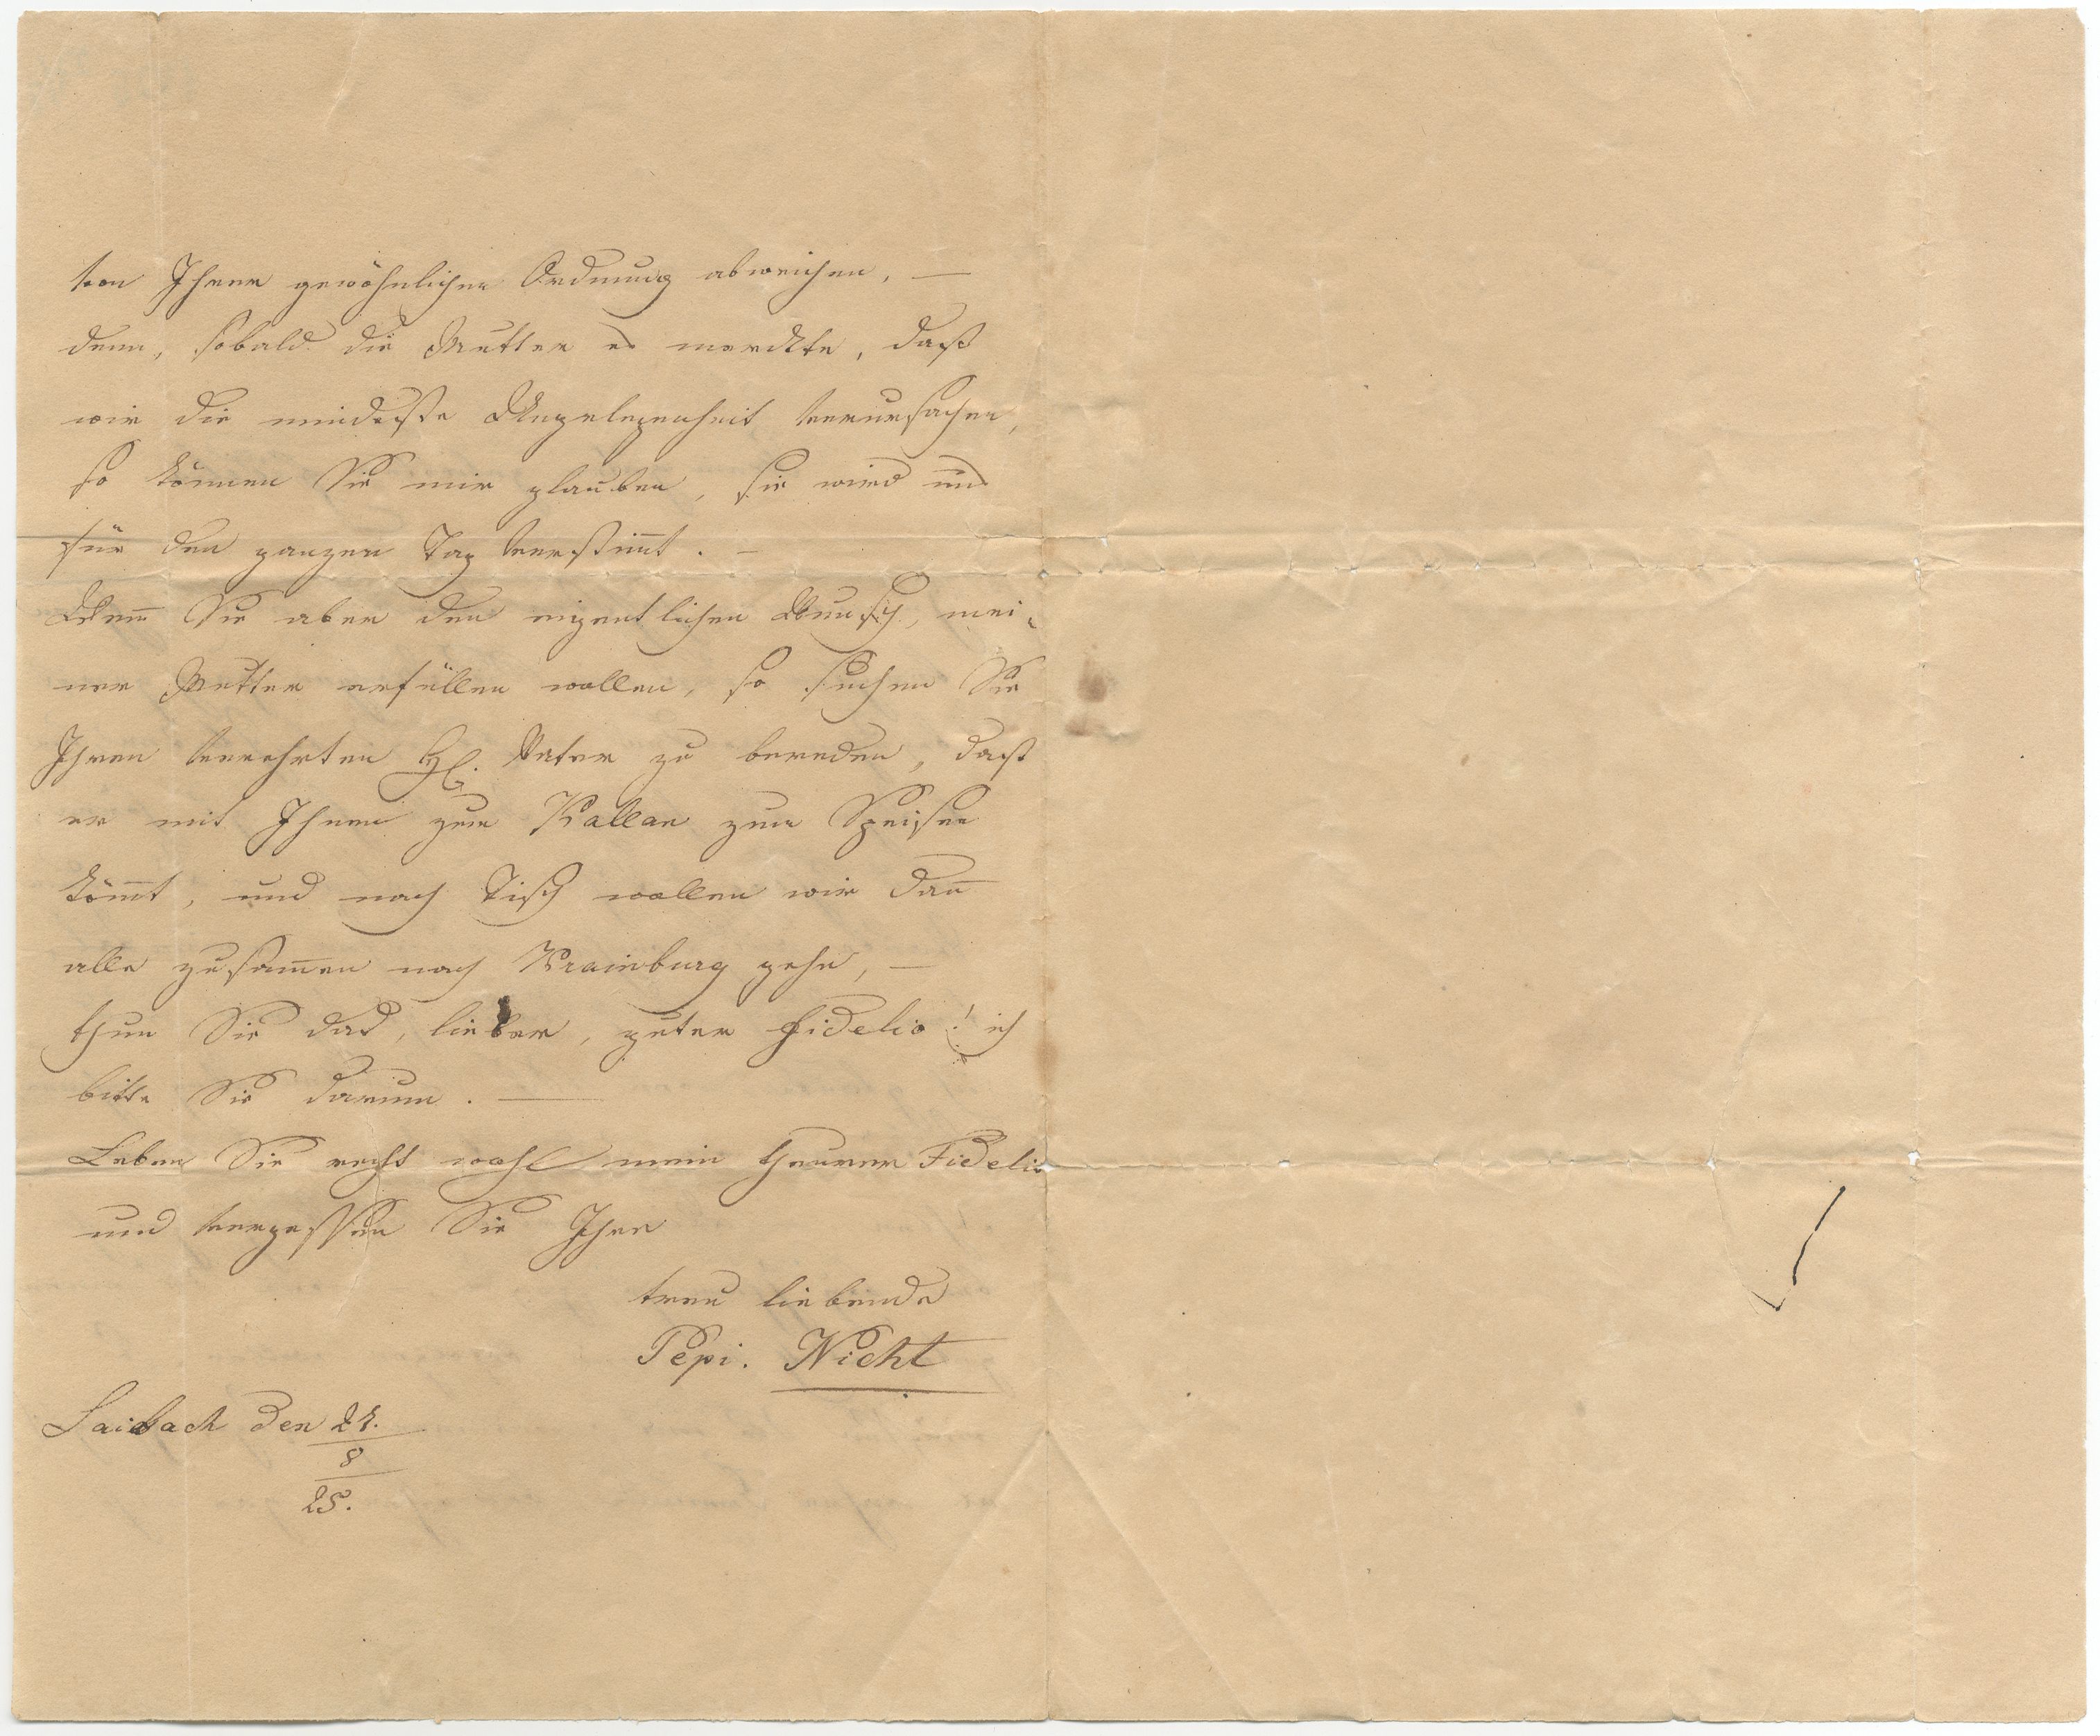 von Ihrer gewöhnlichen Ordnung abweichen, —
denn, sobald die Mutter es merckte, daß
wir die mindeste Ungelegenheit verursachen,
so können Sie mir glauben, sie wird uns
für den ganzen Tag verstim̅t. —
Wen̅ Sie aber den eigentlichen Wunsch, mei-
ner Mutter erfüllen wollen, so suchen Sie
Ihren verehrten H. Vater zu bereden, daß
er mit Ihnen zum Kallan zum Speisen
köm̅t, und nach Tisch wollen wir dan̅
alle zusam̅en nach Krainburg gehn, —
thun Sie das, lieber, guter Fidelio! ich
bitte Sie darum. —
Leben Sie recht wohl mein theurer Fidelio
und vergessen Sie Ihre
treu liebende
Pepi. Nicht
Laibach den
8
25.